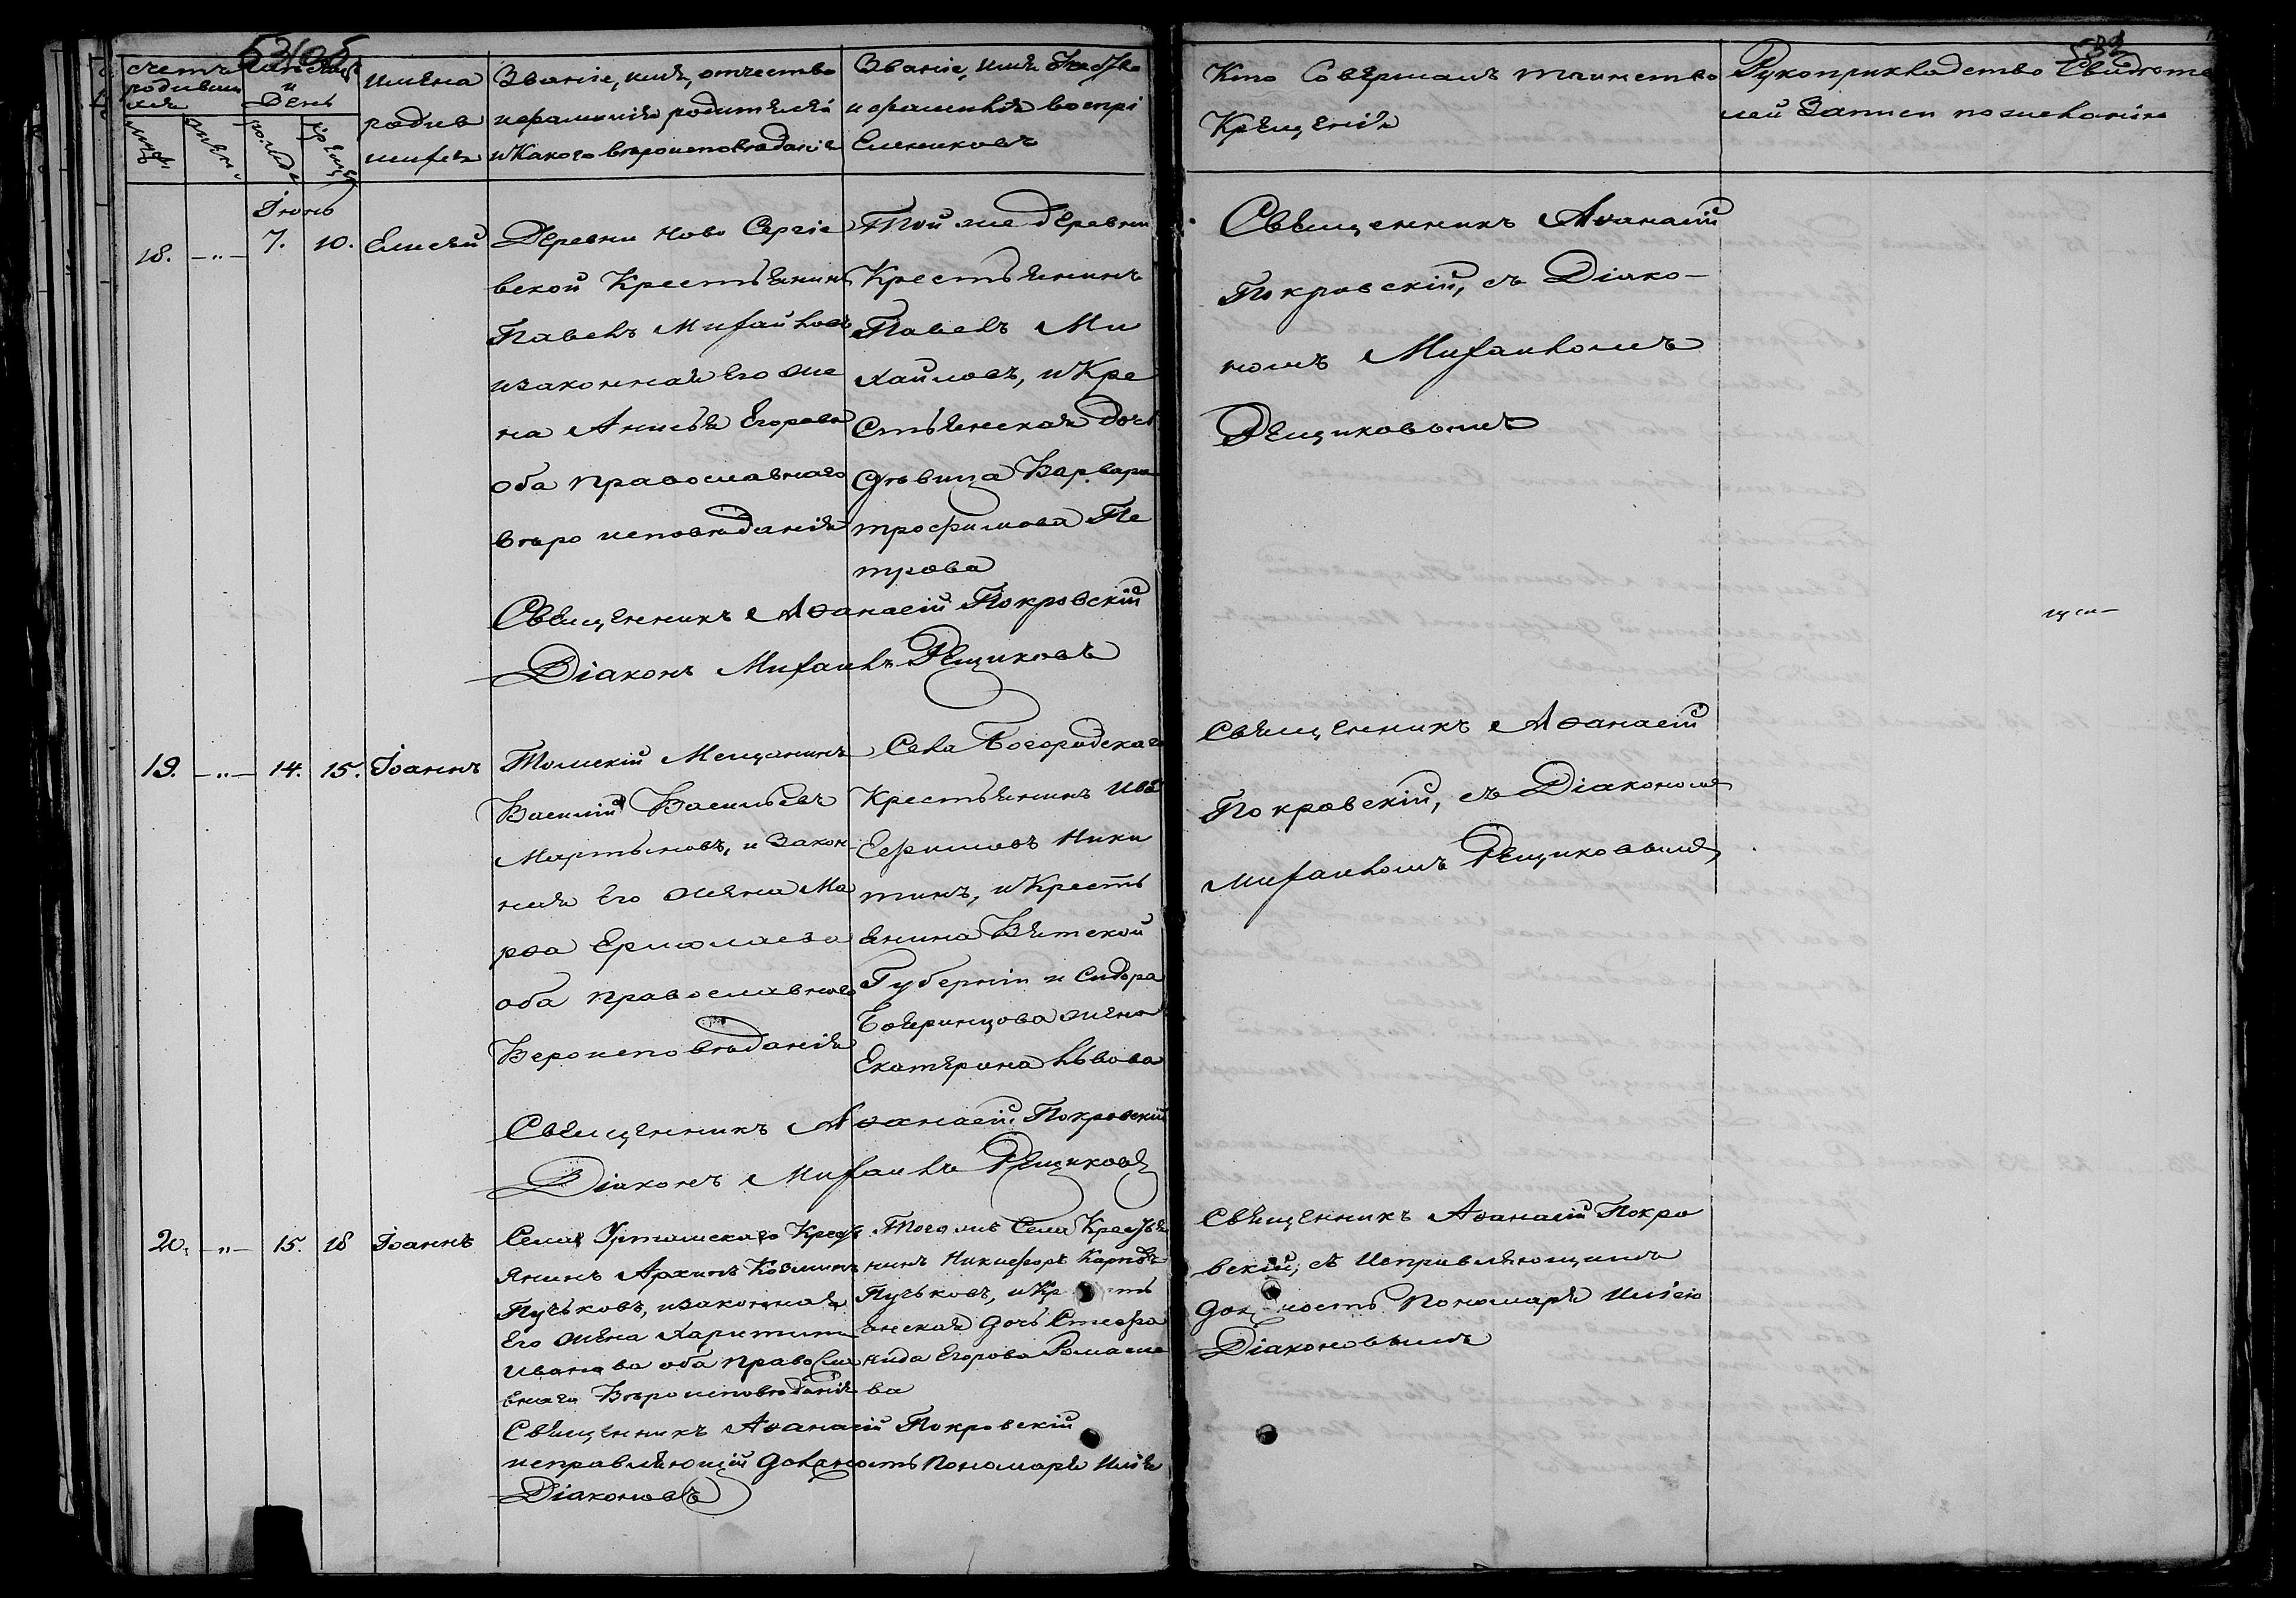 счетъ родившихся
мѣсяцъ и день
муж.
жен.
рожд.
крещ.
имена
родив
шихся
Званіе, имя, отчество
и фамилія родителей
и Какого вѣроисповѣданія
Званіе, имя Отчество
и фамилія воспрі
емниковъ
Кто Совершалъ таинство
Крещенія
Рукоприкладство Свидѣте
лей Записи по желанію
Іюнь
18. — " — 7. 10. Елисей
Деревни Ново Сергіе
вской Крестьянинъ
Павелъ Михайловъ
изаконная его же
на Анисья Егорова
оба православнаго
вѣро исповѣданія
Той же деревни
Крестьянинъ
Павелъ Ми
хайловъ, и Кре
Стьянская дочь
дѣвица Варвара
трофимова Пе
трова
Священникъ Аѳанасій Покровскій
Діаконъ Михаилъ Рещиковъ
Священникъ Аѳанасій
Покровскій, съ Діако-
номъ Михаиломъ
Рещиковымъ
19. — " — 14. 15. Іоаннъ
Томскій Мещанинъ
Василій Васильевъ
Мартыновъ, и Закон-
ная Его жена Ма
рѳа Ермолаева
оба православнаго
Вероисповѣданія
Села Богородскаго
Крестьянинъ Ива
Ефимовъ Ники
тинъ, и Кресть
янина Вятской
Губерніи и Сидора
Бояринцова жена
Екатерина Львова
Священникъ Аѳанасій Покровскій
Діаконъ Михаилъ Рещиковъ
Священникъ Аѳанасій
Покровскій, съ Діакономъ
Михаиломъ Рещиковымъ
20. — " — 15. 18 Іоаннъ
Села Уртамскаго Кресть
янинъ Архипъ Козминъ
Пучьковъ, изаконная
Его жена Харитина
Иванова оба Правосла
внаго Вѣроисповѣданія
Того же Села Крестья
нинъ Никифоръ Карповъ
Пучьковъ, и Кр сть
янская дочь Стефа
нида Егорова Ромаше
ва
Священникъ Аѳанасій Покровскій
исправляющій должность Пономаря Илія
Діаконовъ
Священникъ Аѳанасій Покро
вскій, съ Исправляющимъ
дол ность Пономаря Иліею
Діаконовымъ